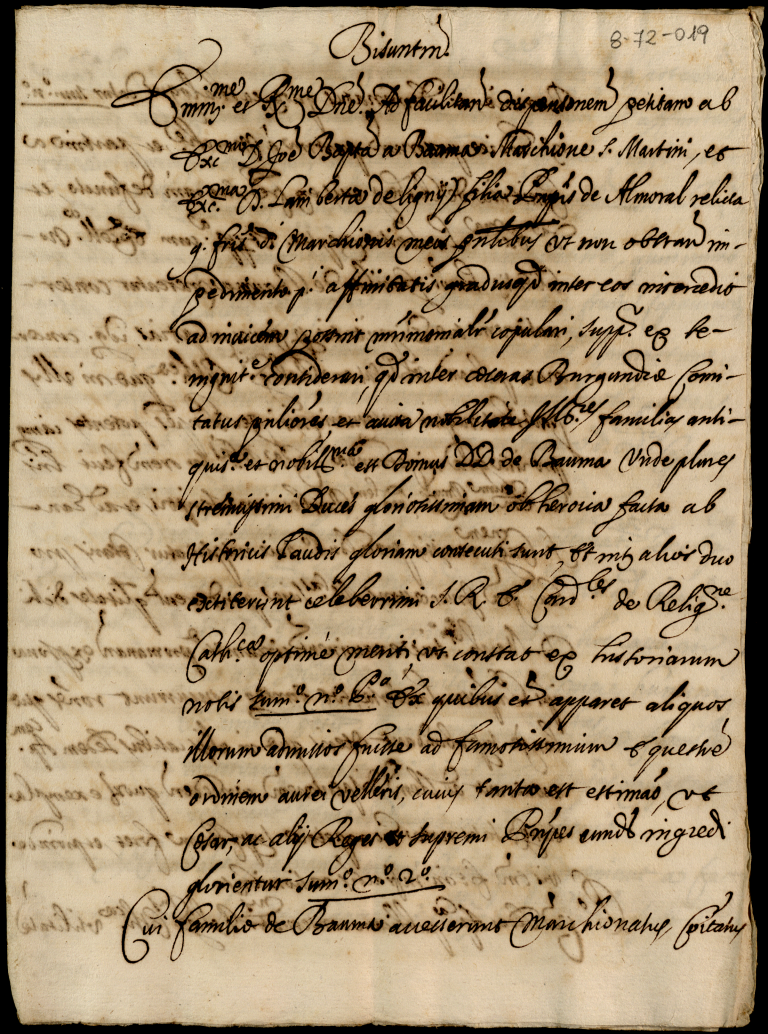 Bisuntin.
8-72-019
Emin.me et R.me Dne. Ad facilitand dispensionem petitam ab
Exc.mo D. Joe Bapta a Bauma Marchione S. Martini, et
Exc.ma D. Lamberta de ligny filia Pnpis de Almoral relicta
q. fris d. Marchionis meis pntibus ut non obstan im-
pedimento p.i affinitatis gradus qd inter eos intercedit
ad invicem possint mrimonialr copulari, supp.r ex be-
nignit.e considerari, qd inter coeteras Burgundiae Comi-
tatus pnliores, et avita nobilitate familias anti-
quis. et nobil.ma est Domus DD. de Bauma unde plures
strenuissimi Duces gloriosissimam ob heroica facta ab
Historicis laudis gloriam consecuti sunt, et int alios duo
extiterunt celeberrimi S. R. E. Card.les de Relig.ne
Cath.ca optimé meriti, ut constat ex historiarum
notis sum.o n.o P.o Ex quibus et apparet aliquos
illorum admissos fuisse ad famosissimum equestré
ordinem aurei velleris, cuius tanta est estimao, ut
Cesar, ac alij Reges et supremi Pnpes eund ingredi
glorientur sum.o n.o 2.o
Cui familie de Bauma accesserunt Marchionatus, Comitatus